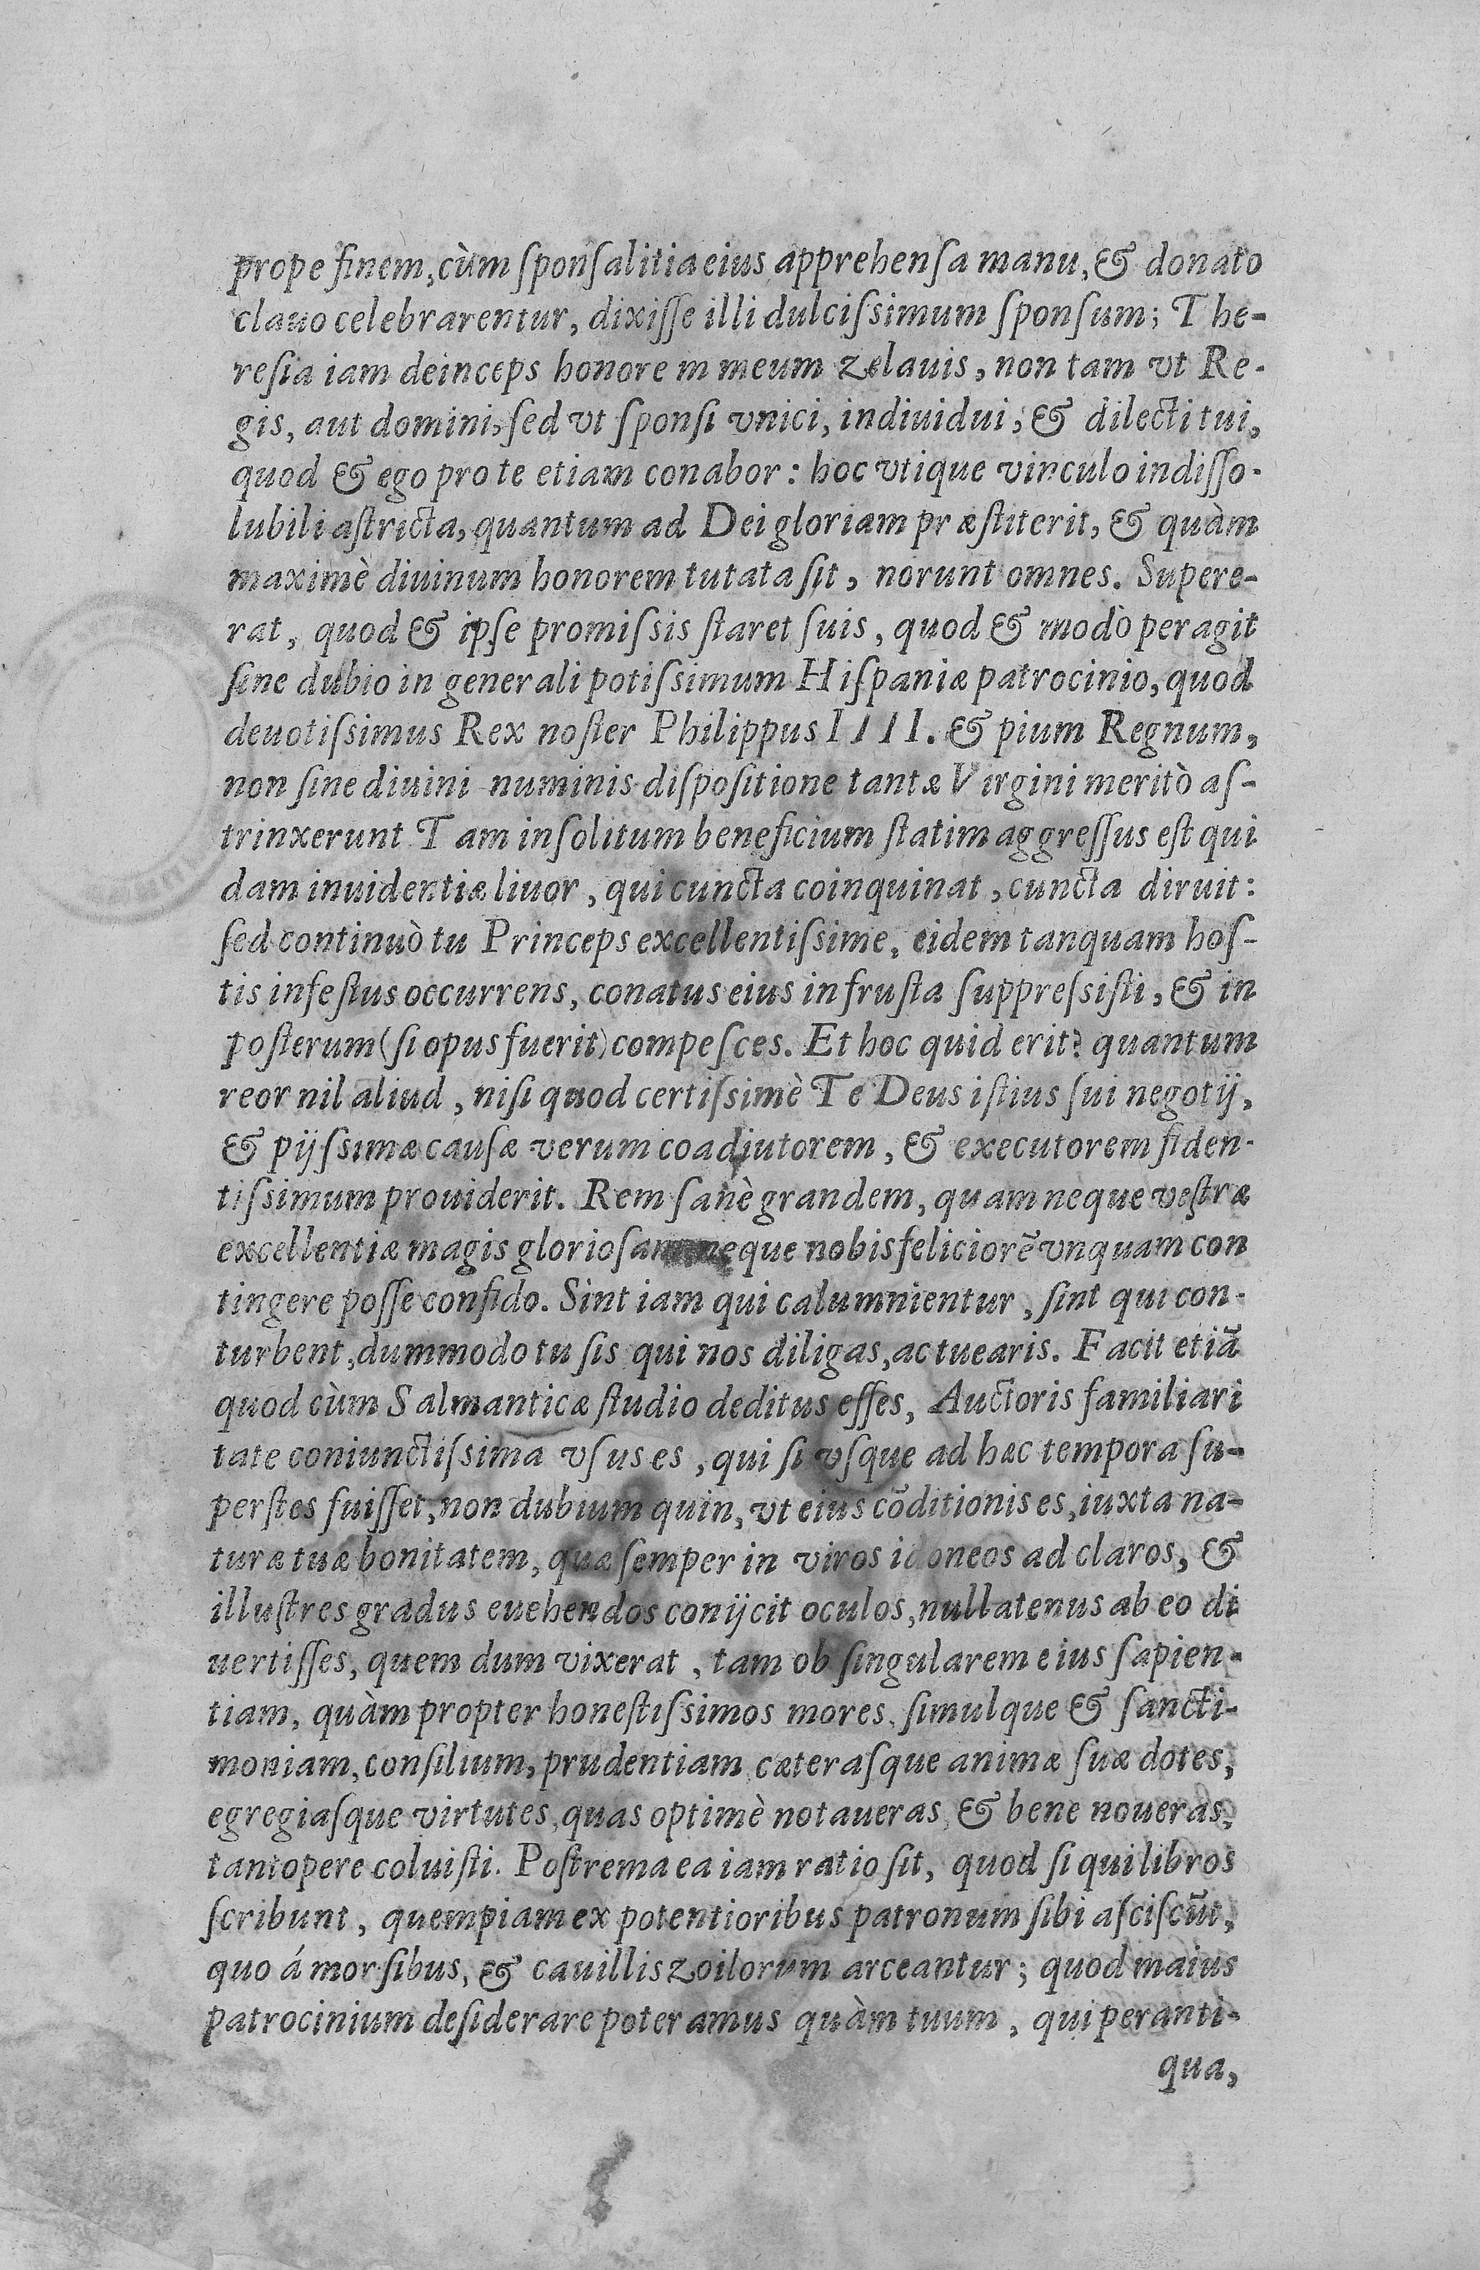 prope finem, cùm sponsalitia eius apprehensa manu, & donato
clauo celebrarentur, dixisse illi dulcissimum sponsum; The-
resia iam deinceps honorem meum zelauis, non tam vt Re-
gis, aut domini, sed vt sponsi vnici, indiuidui, & dilecti tui,
quod & ego pro te etiam conabor: hoc vtique vinculo indisso-
lubili astricta, quantum ad Dei gloriam præstiterit, & quàm
maximè diuinum honorem tutata sit, norunt omnes. Supere-
rat, quod & ipse promissis staret suis, quod & modò peragit
sine dubio in generali potissimum Hispaniæ patrocinio, quod
deuotissimus Rex noster Philippus IIII. & pium Regnum,
non sine diuini numinis dispositione tantæ Virgini meritò as-
trinxerunt Tam insolitum beneficium statim aggressus est qui
dam inuidentiæ liuor, qui cuncta coinquinat, cuncta diruit:
sed continuò tu Princeps excellentissime, eidem tanquam hos-
tis infestus occurrens, conatus eius in frusta suppressisti, & in
posterum (si opus fuerit) compesces. Et hoc quid erit? quantum
reor nil aliud, nisi quod certissimè Te Deus istius sui negotij,
& pijssimæ causæ verum coadiutorem, & executorem fiden-
tissimum prouiderit. Rem sanè grandem, quam neque vestræ
excellentiæ magis gloriosam neque nobis feliciorẽ vnquam con
tingere posse confido. Sint iam qui calumnientur, sint qui con-
turbent, dummodo tu sis qui nos diligas, ac tuearis. Facit etiã
quod cùm Salmanticæ studio deditus esses, Auctoris familiari
tate coniunctissima vsus es, qui si vsque ad hæc tempora su-
perstes fuisset, non dubium quin, vt eius cõditionis es, iuxta na-
turæ tuæ bonitatem, quæ semper in viros idoneos ad claros, &
illustres gradus euehendos conijcit oculos, nullatenus ab eo di
uertisses, quem dum vixerat, tam ob singularem eius sapien-
tiam, quàm propter honestissimos mores, simulque & sancti-
moniam, consilium, prudentiam cæterasque animæ suæ dotes,
egregiasque virtutes, quas optimè notaueras, & bene noueras,
tantopere coluisti. Postrema ea iam ratio sit, quod si qui libros
scribunt, quempiam ex potentioribus patronum sibi asciscũt,
quo á morsibus, & cauillis zoilorum arceantur; quod maius
patrocinium desiderare poteramus quàm tuum, qui peranti-
qua,